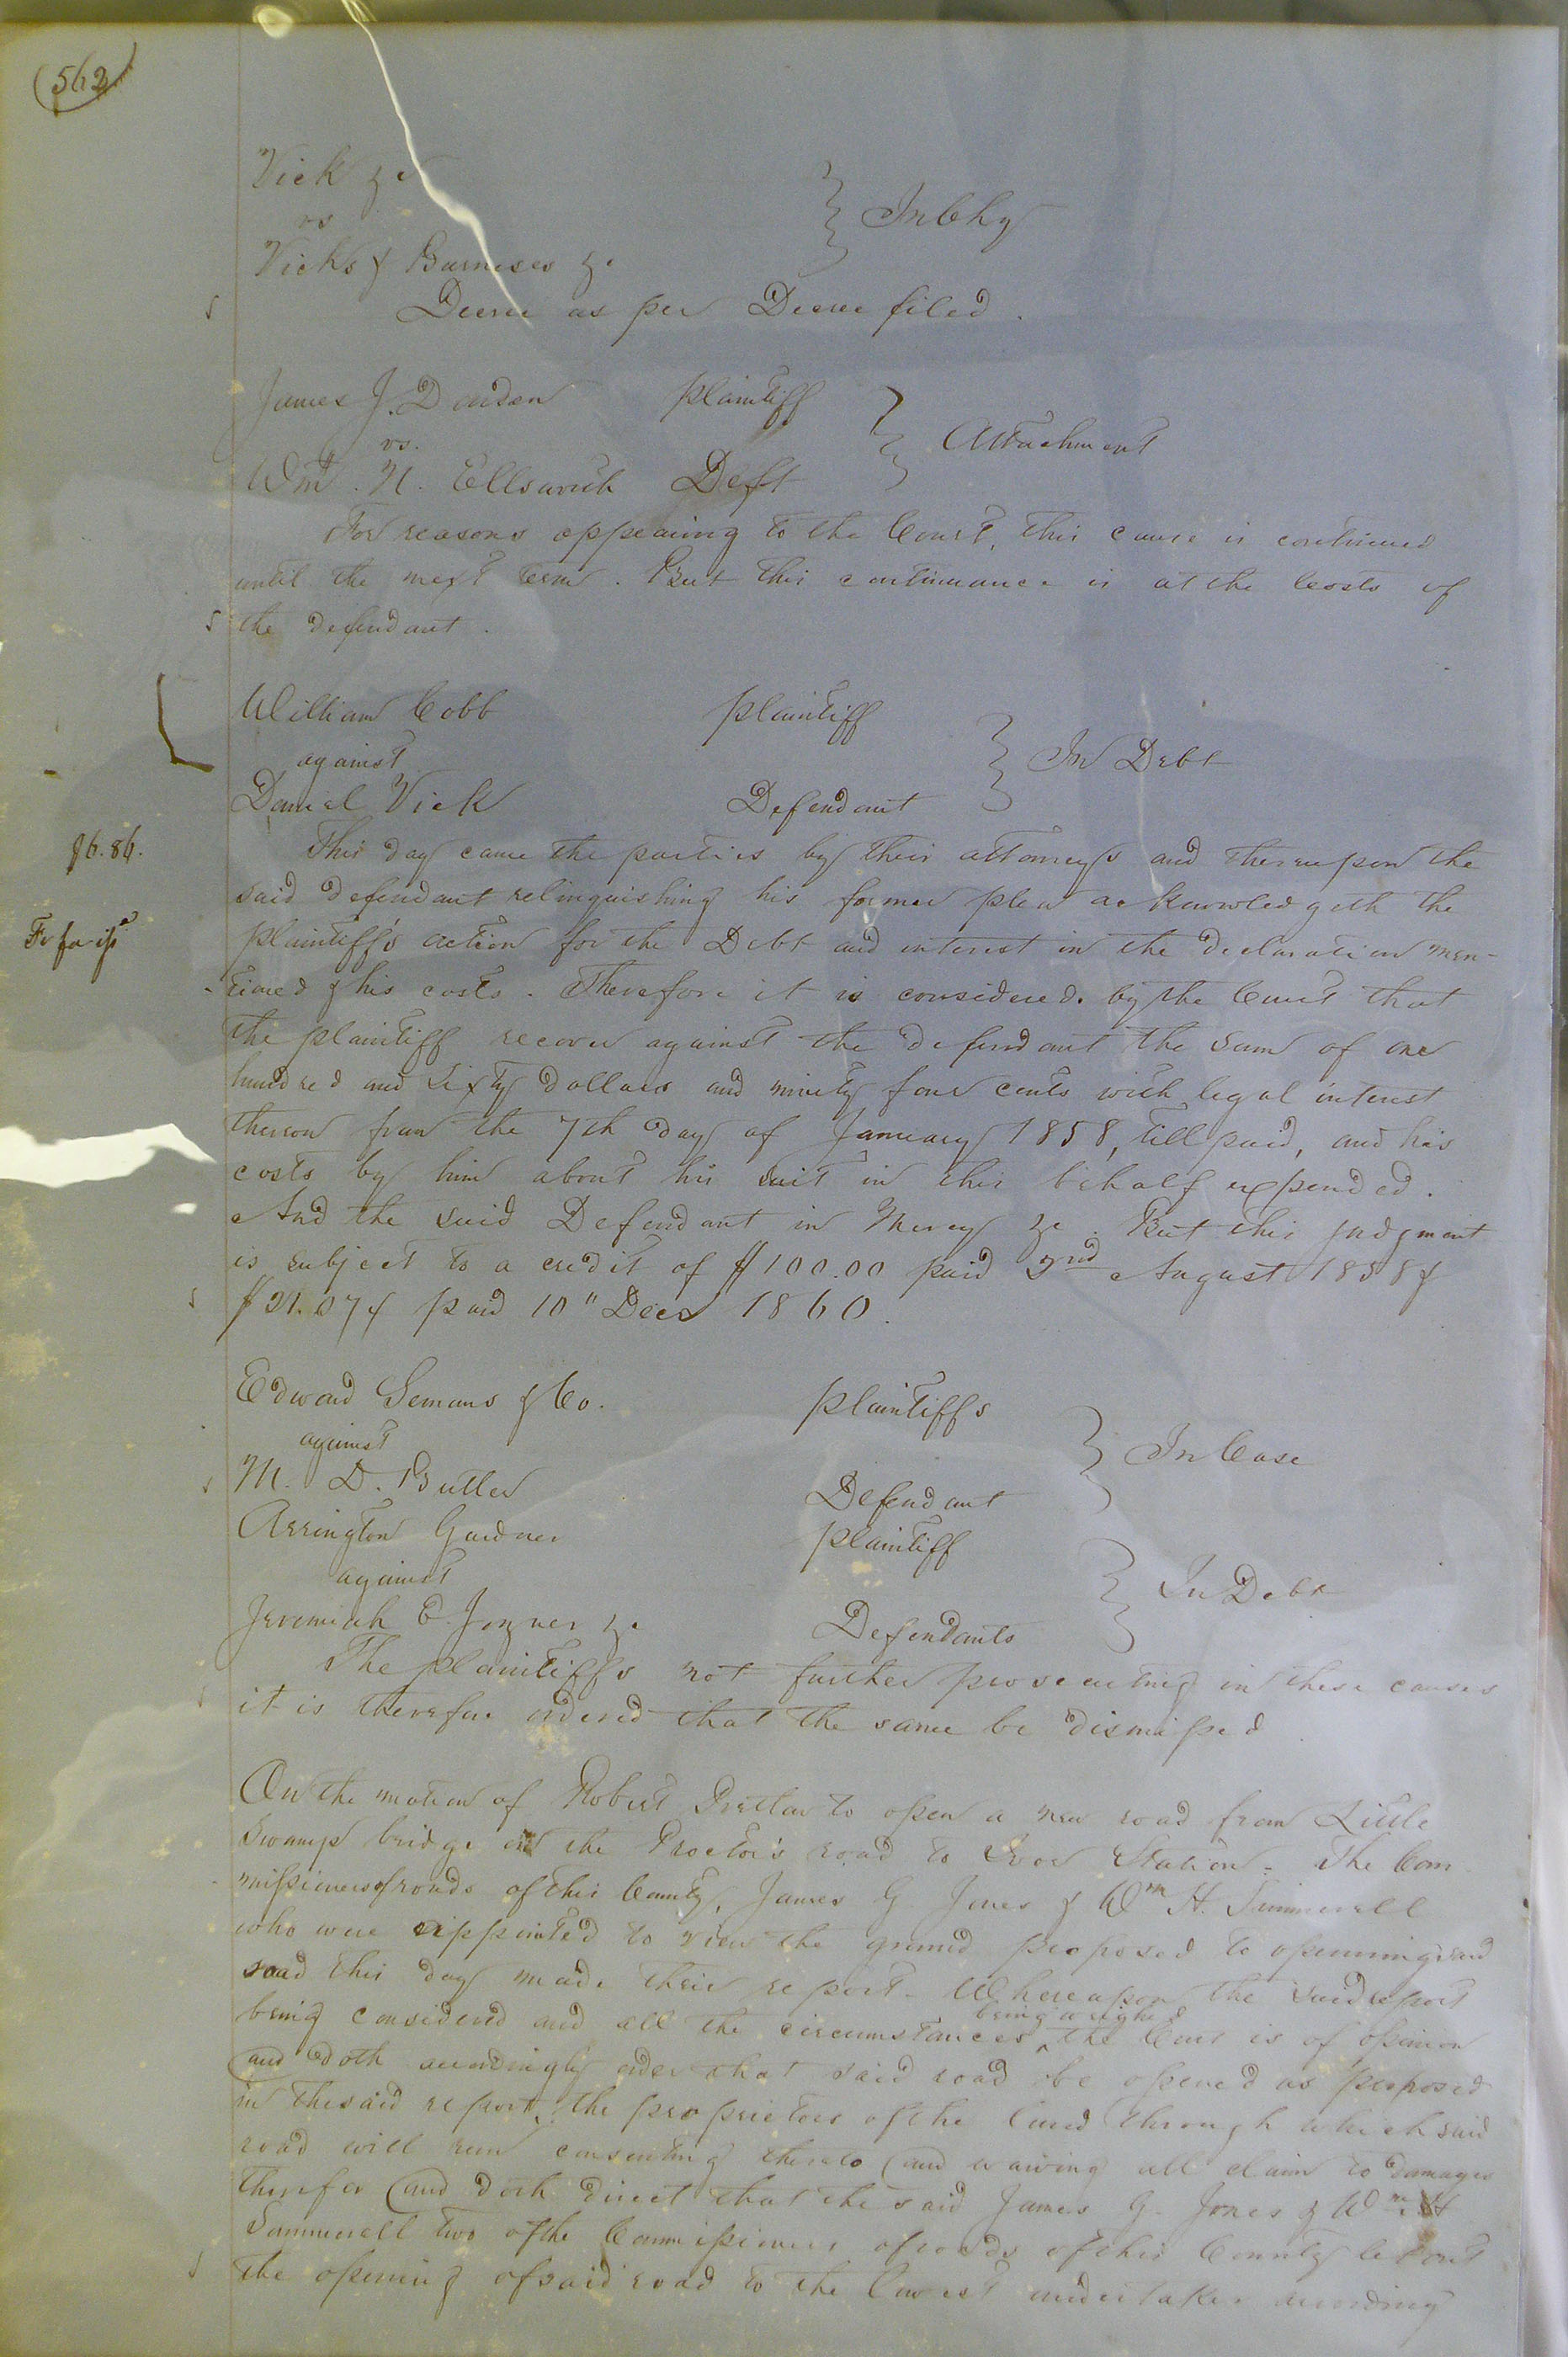 (562)
Vick &c
vs
Vicks & Barneses &c
} In Chy
Decree as per Decree filed.
James J. Darden plaintiff
vs.
Wm. N. Ellsworth Deft
} Attachment
For reasons appearing to the Court, this cause is continued
until the next term. But this continuance is at the Costs of
the defendant.
William Cobb plaintiff
against
Daniel Vick Defendant
} In Debt
$6.86.
Fi fa isd
This day came the parties by their attorneys and thereupon the
said defendant relinquishing his former plea acknowledgeth the
plaintiff's action for the Debt and interest in the declaration men-
-tioned & his costs. Therefore it is considered by the Court that
the plaintiff recover against the defendant the sum of one
hundred and sixty dollars and ninety four cents with legal interest
thereon from the 7th day of January 1858, till paid, and his
costs by him about his suit in this behalf expended.
And the said Defendant in Mercy &c. But this judgment
is subject to a credit of $100.00 paid August 1858 &
paid 10" Decr 1860.
Edward Semans & Co. plaintiffs
against
M. D. Butler Defendant
} In Case
Arrington Gardner plaintiff
against
Jeremiah C. Joyner &c. Defendants
} In Debt
The plaintiffs not further prosecuting in these causes
it is therefore ordered that the same be dismissed
On the motion of Robert Pretlow to open a new road from Little
Swamp bridge on the Proctor's road to Ivor Station - The Com-
-missioners of roads of this County, James G. Jones & Wm H. Summerell
who were appointed to view the ground proposed to openning said
road this day made their report - Whereupon the said report
being considered and all the circumstances ^ being weighed the Court is of opinion
and doth accordingly order that said road be opened as proposed
in the said report, the proprietors of the land through which said
road will run consenting thereto (and waiving all claim to damages
therefor) and doth direct that the said James G. Jones & Wm H
Summerell two of the Commissioners of roads of this County let out
the opening of said road to the lowest undertaker